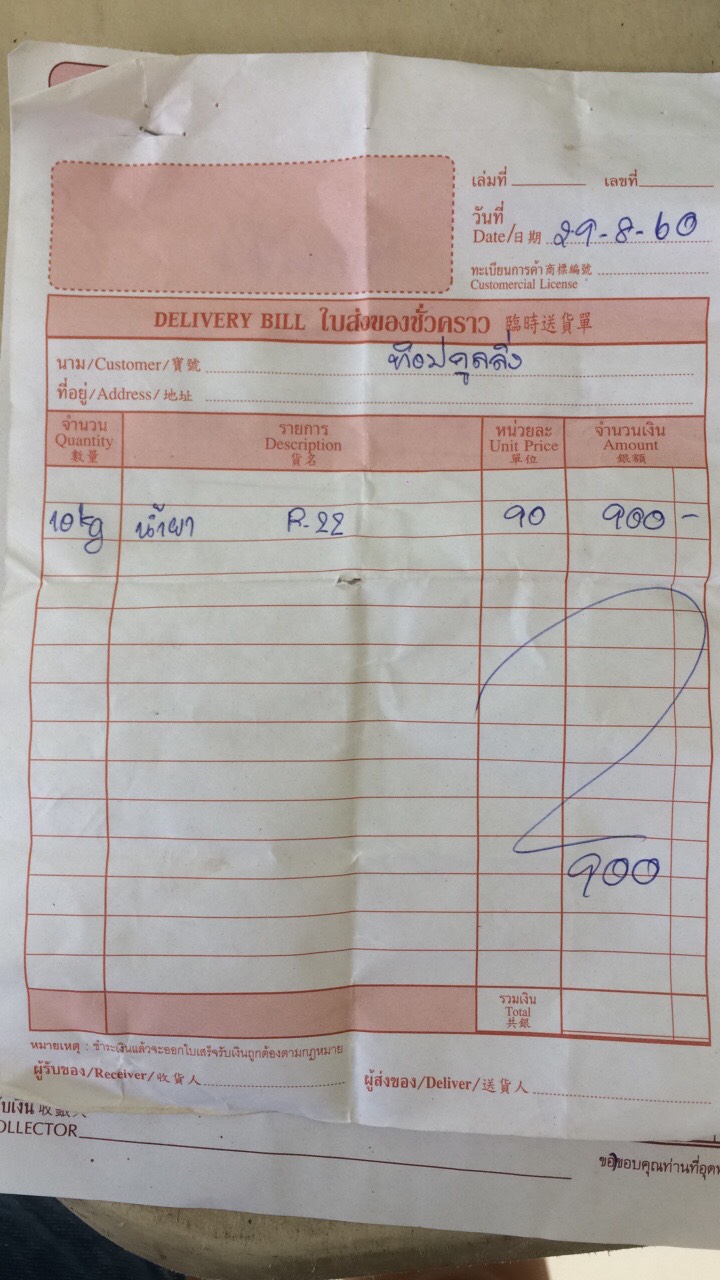 เล่มที่ เลขที่
วันที่
Date/日期 29-8-60
ทะเบียนการค้า 商標編號
Customercial License
DELIVERY BILL ใบส่งของชั่วคราว 臨時送貨單
นาม/Customer/寶號 ท๊อปคูลลิ่ง
ที่อยู่/Address/地址
จำนวน รายการ หน่วยละ จำนวนเงิน
Quantity Description Unit Price Amount
數量 貨名 單位 銀額
10kg น้ำยา R-22 90 900 -
900
รวมเงิน
Total
共銀
หมายเหตุ : ชำระเงินแล้วจะออกใบเสร็จรับเงินถูกต้องตามกฎหมาย
ผู้รับของ/Receiver/收貨人 ผู้ส่งของ/Deliver/送貨人
รับเงิน 收銀人
OLLECTOR
ขอขอบคุณท่านที่อุด